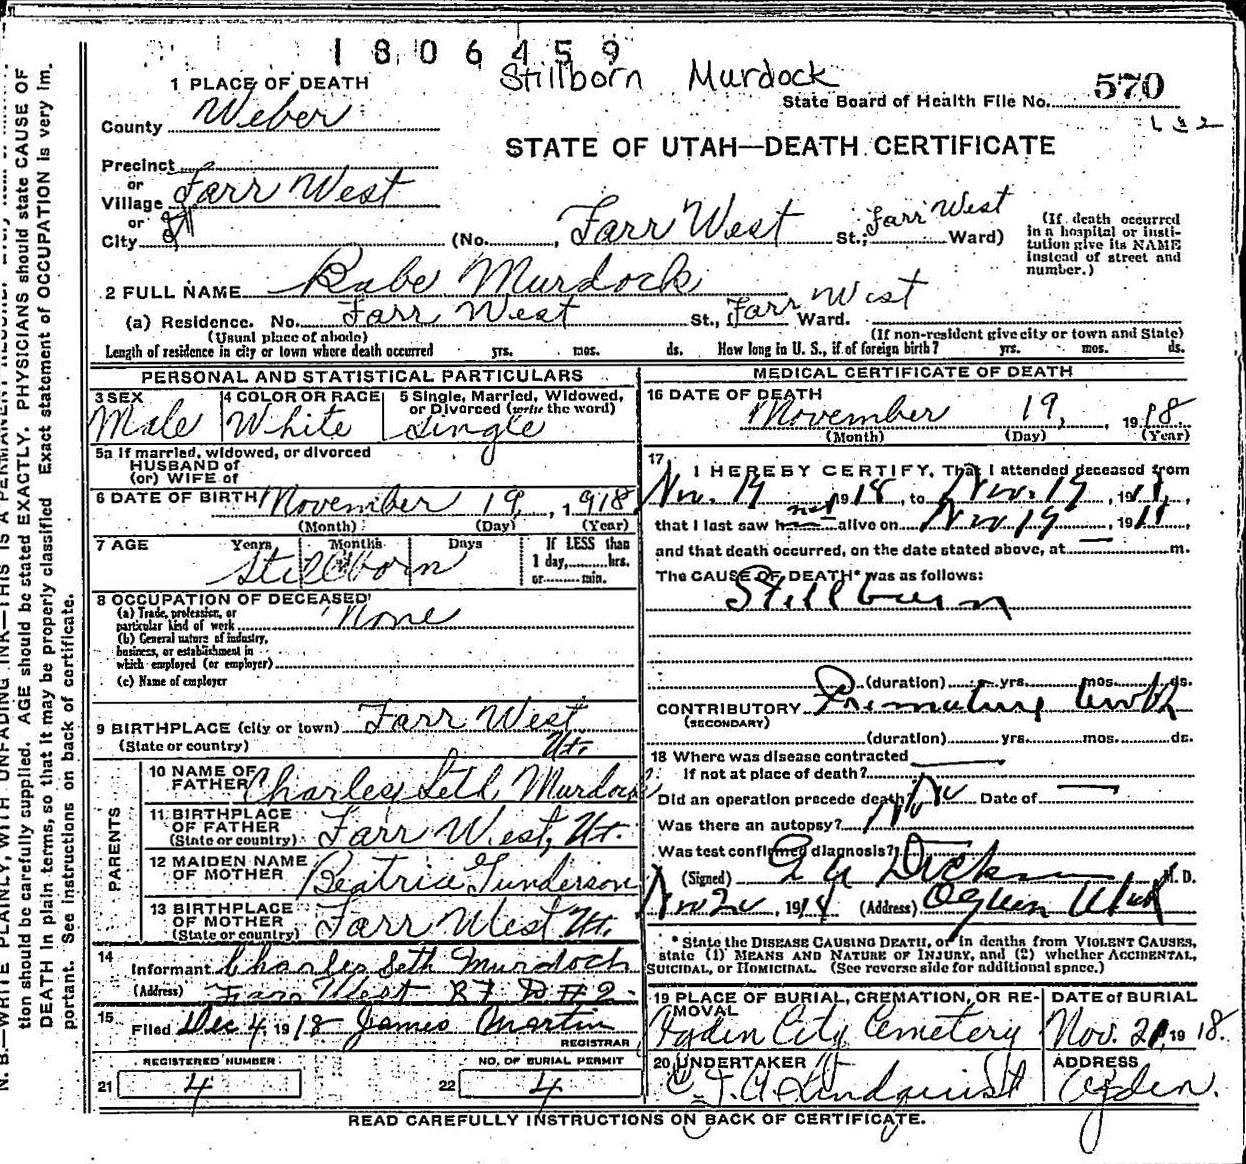 1806459
Stillborn Murdock
1 PLACE OF DEATH
State Board of Health File No. 570
County Weber
STATE OF UTAH—DEATH CERTIFICATE
Precinct
or
Village Farr West
or
City
(No. , Farr West St.; Farr West Ward)
(If death occurred in a hospital or institution give its NAME instead of street and number.)
2 FULL NAME Babe Murdock
(a) Residence. No. Farr West St., Farr West Ward.
(Usual place of abode) (If non-resident give city or town and State)
Length of residence in city or town where death occurred yrs. mos. ds. How long in U. S., if of foreign birth? yrs. mos. ds.
PERSONAL AND STATISTICAL PARTICULARS
3 SEX 4 COLOR OR RACE 5 Single, Married, Widowed, or Divorced (write the word)
Male White Single
5a If married, widowed, or divorced
HUSBAND of
(or) WIFE of
6 DATE OF BIRTH November 19, 1918
(Month) (Day) (Year)
7 AGE Years Months Days If LESS than
1 day, hrs.
or min.
Stillborn
8 OCCUPATION OF DECEASED
(a) Trade, profession, or
particular kind of work None
(b) General nature of industry,
business, or establishment in
which employed (or employer)
(c) Name of employer
9 BIRTHPLACE (city or town) Farr West
(State or country) Ut.
PARENTS
10 NAME OF
FATHER Charles Seth Murdock
11 BIRTHPLACE
OF FATHER
(State or country) Farr West, Ut.
12 MAIDEN NAME
OF MOTHER Beatrice Gunderson
13 BIRTHPLACE
OF MOTHER
(State or country) Farr West Ut.
14
Informant Charles Seth Murdock
(Address) Farr West R F D #2
15
Filed Dec 4, 1918 James Martin
REGISTRAR
REGISTERED NUMBER NO. OF BURIAL PERMIT
21 4 22 4
MEDICAL CERTIFICATE OF DEATH
16 DATE OF DEATH
November 19, 1918
(Month) (Day) (Year)
17
I HEREBY CERTIFY, That I attended deceased from
Nov. 19 1918, to Nov. 19, 1918,
that I last saw h not alive on Nov 19, 1918,
and that death occurred, on the date stated above, at m.
The CAUSE OF DEATH* was as follows:
Stillborn
(duration) yrs. mos. ds.
CONTRIBUTORY Premature birth
(SECONDARY)
(duration) yrs. mos. ds.
18 Where was disease contracted
If not at place of death?
Did an operation precede death? No Date of
Was there an autopsy? No
Was test confirmed diagnosis?
(Signed) M. D.
1918 (Address) Ogden Utah
*State the DISEASE CAUSING DEATH, or in deaths from VIOLENT CAUSES,
state (1) MEANS AND NATURE OF INJURY, and (2) whether ACCIDENTAL,
SUICIDAL, or HOMICIDAL. (See reverse side for additional space.)
19 PLACE OF BURIAL, CREMATION, OR REMOVAL DATE of BURIAL
Ogden City Cemetery Nov. 21, 1918.
20 UNDERTAKER ADDRESS
Lindquist Ogden.
READ CAREFULLY INSTRUCTIONS ON BACK OF CERTIFICATE.
N. B.—WRITE PLAINLY, WITH UNFADING INK—THIS IS A PERMANENT RECORD.
tion should be carefully supplied. AGE should be stated EXACTLY. PHYSICIANS should state CAUSE OF
DEATH in plain terms, so that it may be properly classified Exact statement of OCCUPATION is very im-
portant. See instructions on back of certificate.